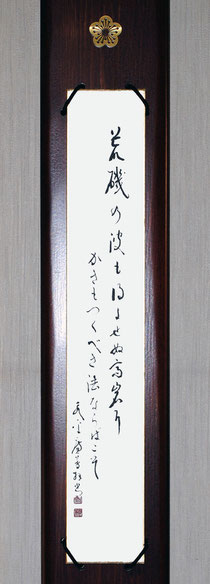 荒磯の波も得よせぬ高岩に
かきもつくべき法ならばこそ